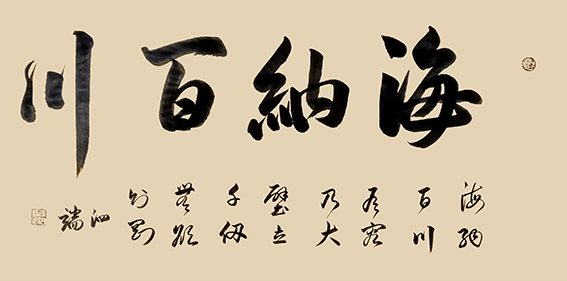 海納百川
海納
百川
有容
乃大
壁立
千仞
無欲
則剛
泗端